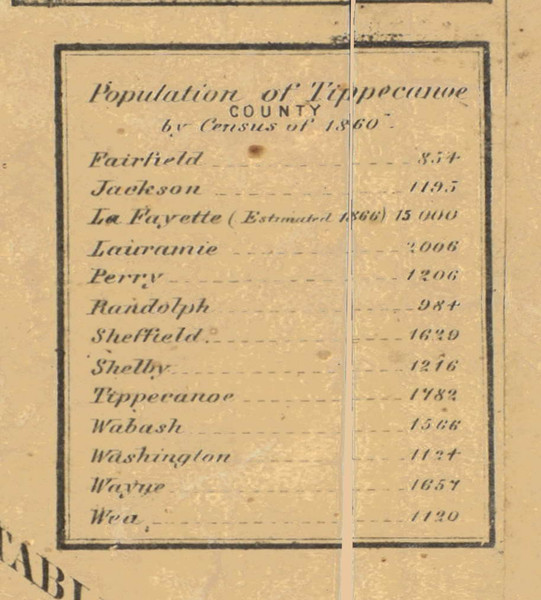 Population of Tippecanoe
COUNTY
by Census of 1860
Fairfield 854
Jackson 1195
La Fayette (Estimated 1866) 15 000
Lauramie 2006
Perry 1206
Randolph 984
Sheffield 1629
Shelby 1216
Tippecanoe 1782
Wabash 1566
Washington 1124
Wayne 1657
Wea 1120